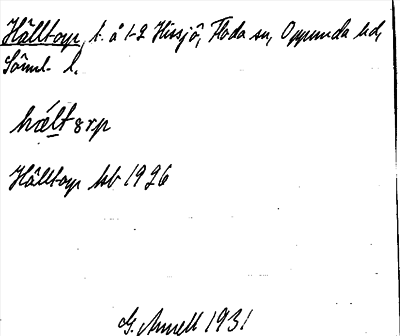 Hälltorp, t. å 1-2 Hissjö, Floda sn, Oppunda hd,
Söml. l.
hæ̀ltərp
Hälltorp hb 1926
G. Annell 1931